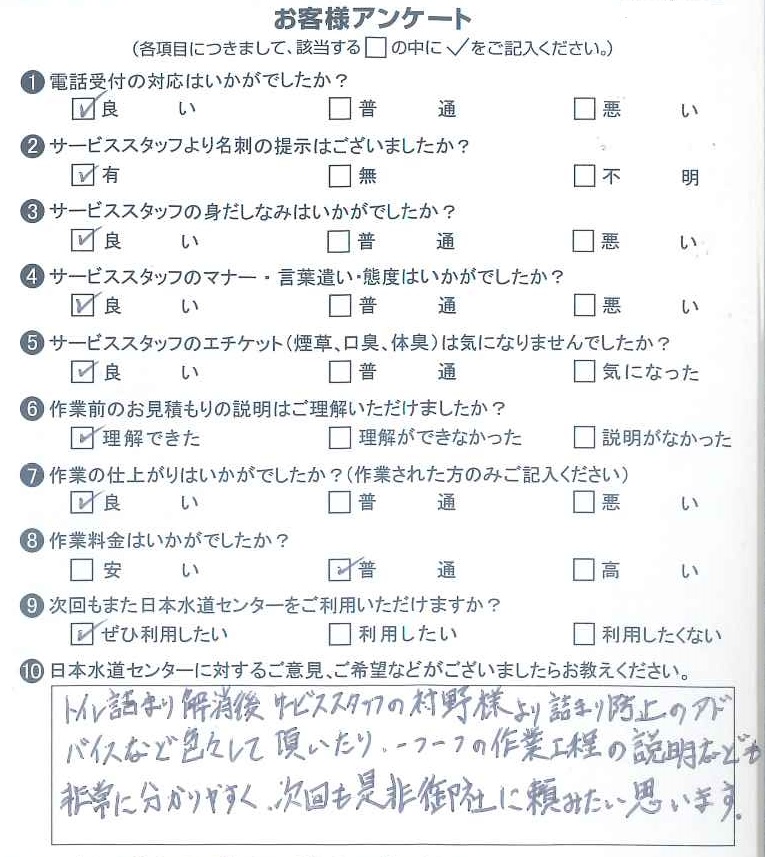 お客様アンケート
(各項目につきまして、該当する□の中に✓をご記入ください。)
❶電話受付の対応はいかがでしたか?
☑良い □普通 □悪い
❷サービススタッフより名刺の提示はございましたか?
☑有 □無 □不明
❸サービススタッフの身だしなみはいかがでしたか?
☑良い □普通 □悪い
❹サービススタッフのマナー・言葉遣い・態度はいかがでしたか?
☑良い □普通 □悪い
❺サービススタッフのエチケット(煙草、口臭、体臭)は気になりませんでしたか?
☑良い □普通 □気になった
❻作業前のお見積もりの説明はご理解いただけましたか?
☑理解できた □理解ができなかった □説明がなかった
❼作業の仕上がりはいかがでしたか?(作業された方のみご記入ください)
☑良い □普通 □悪い
❽作業料金はいかがでしたか?
□安い ☑普通 □高い
❾次回もまた日本水道センターをご利用いただけますか?
☑ぜひ利用したい □利用したい □利用したくない
❿日本水道センターに対するご意見、ご希望などがございましたらお教えください。
トイレ詰まり解消後サービススタッフの村野様より詰まり防止のアド
バイスなど色々して頂いたり、一つ一つの作業工程の説明なども
非常に分かりやすく、次回も是非御社に頼みたい思います。